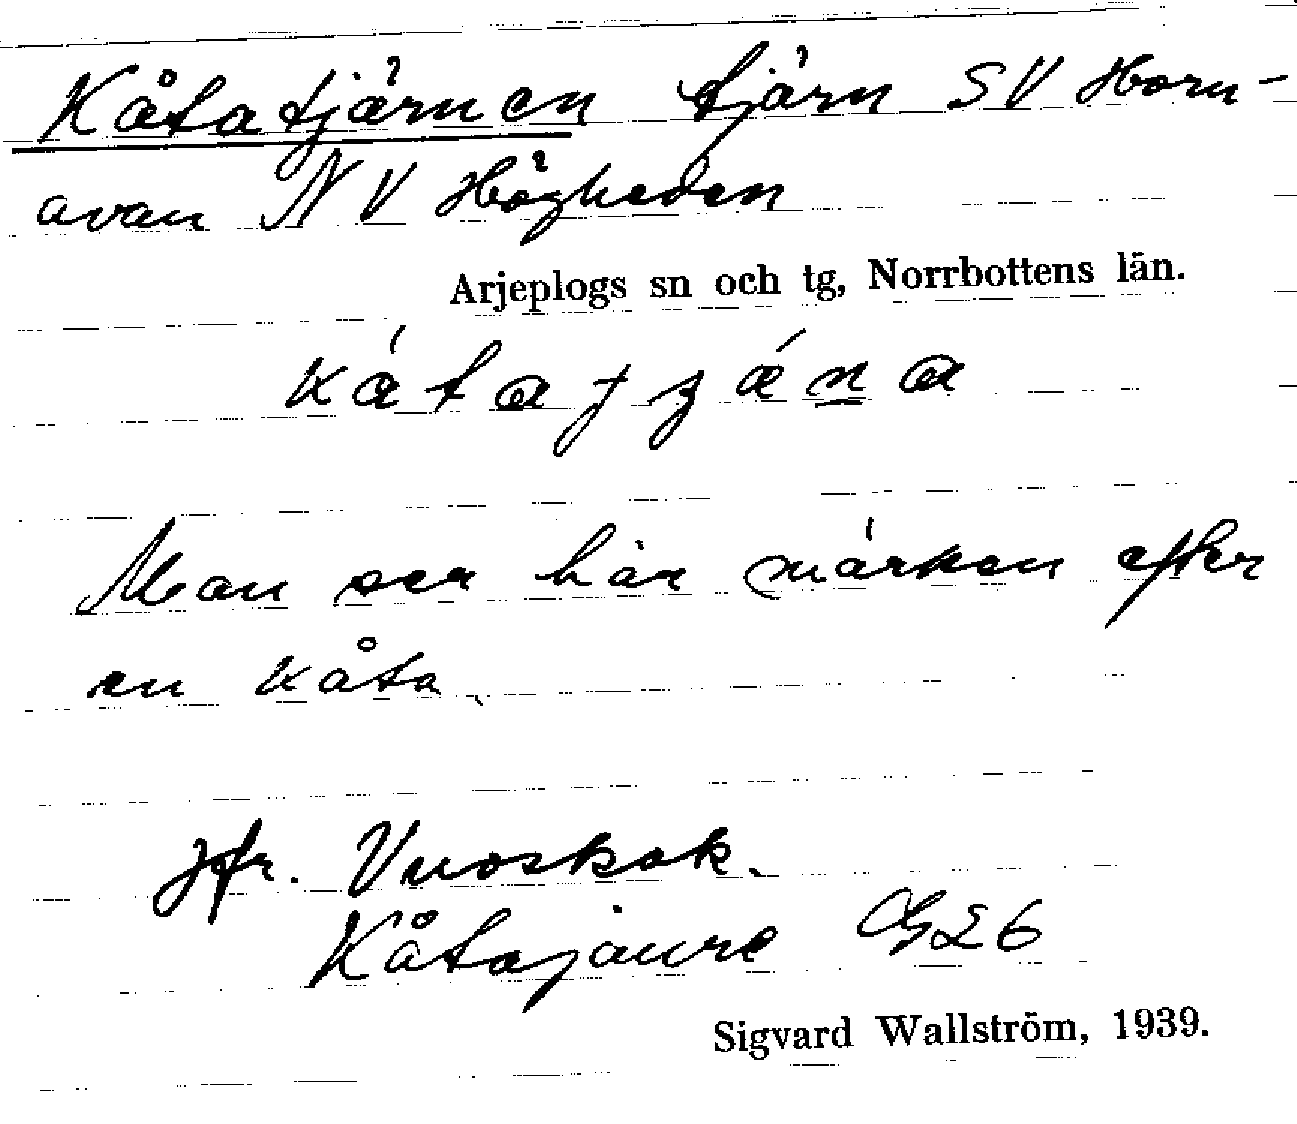 Kåtatjärnen tjärn SV Horn-
avan NV Högheden
Arjeplogs sn och tg, Norrbottens län.
Man ser här märken efter
en kåta.
Jfr. Vuoskok.
Kåtajaure GΣ6
Sigvard Wallström, 1939.